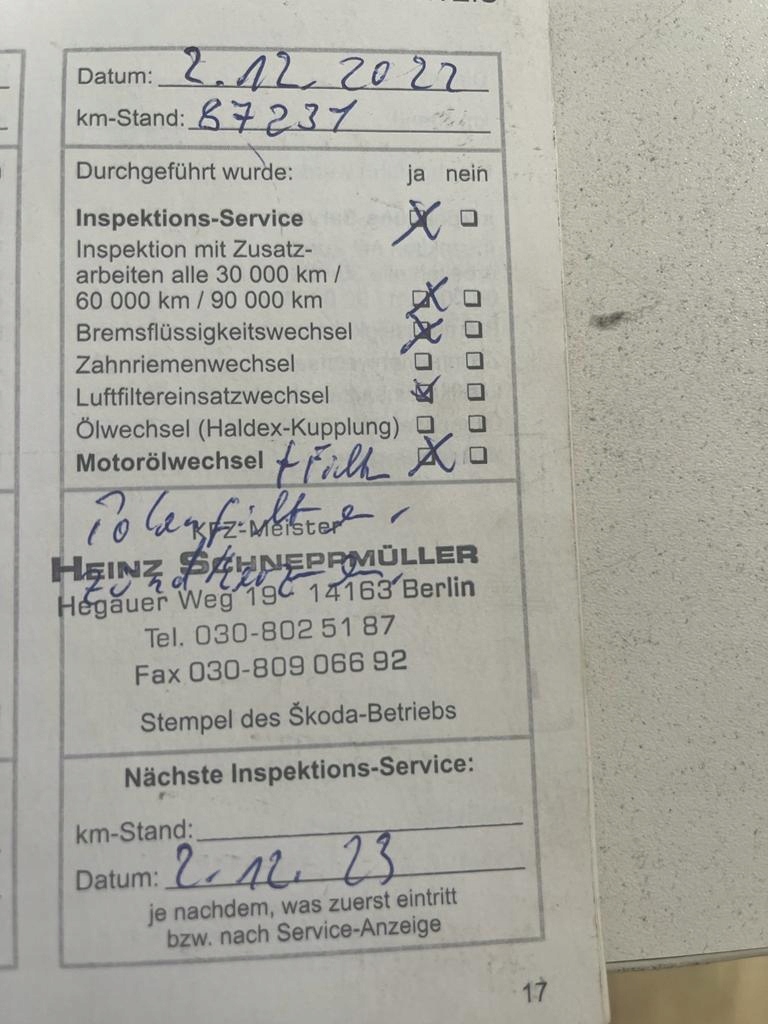 Datum: 2.12.2022
km-Stand: 87231
Durchgeführt wurde: ja nein
Inspektions-Service
Inspektion mit Zusatz-
arbeiten alle 30 000 km /
60 000 km / 90 000 km
Bremsflüssigkeitswechsel
Zahnriemenwechsel
Luftfiltereinsatzwechsel
Ölwechsel (Haldex-Kupplung)
Motorölwechsel +
KFZ-Meister
HEINZ SCHNEPPMÜLLER
Hegauer Weg 19 14163 Berlin
Tel. 030-802 51 87
Fax 030-809 066 92
Stempel des Škoda-Betriebs
Nächste Inspektions-Service:
km-Stand:
Datum: 2.12.23
je nachdem, was zuerst eintritt
bzw. nach Service-Anzeige
17